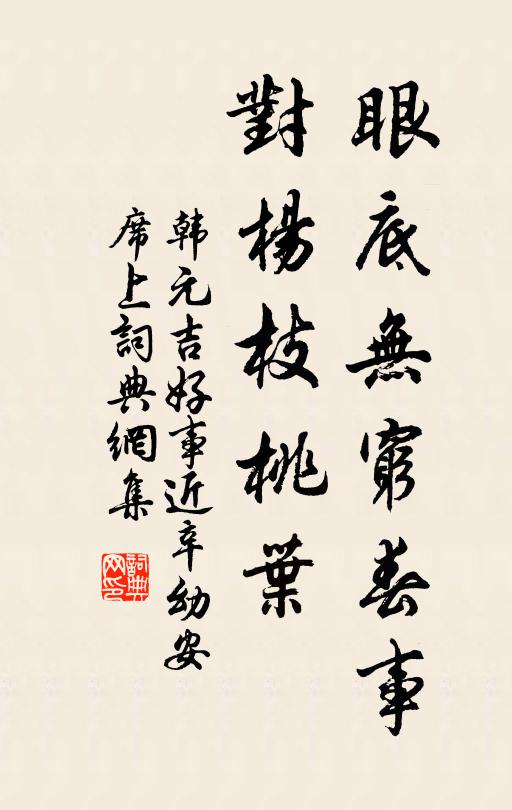 眼底無窮春事
對楊枝桃葉
韩元吉好事近辛幼安
席上詞典網集
詞典网印